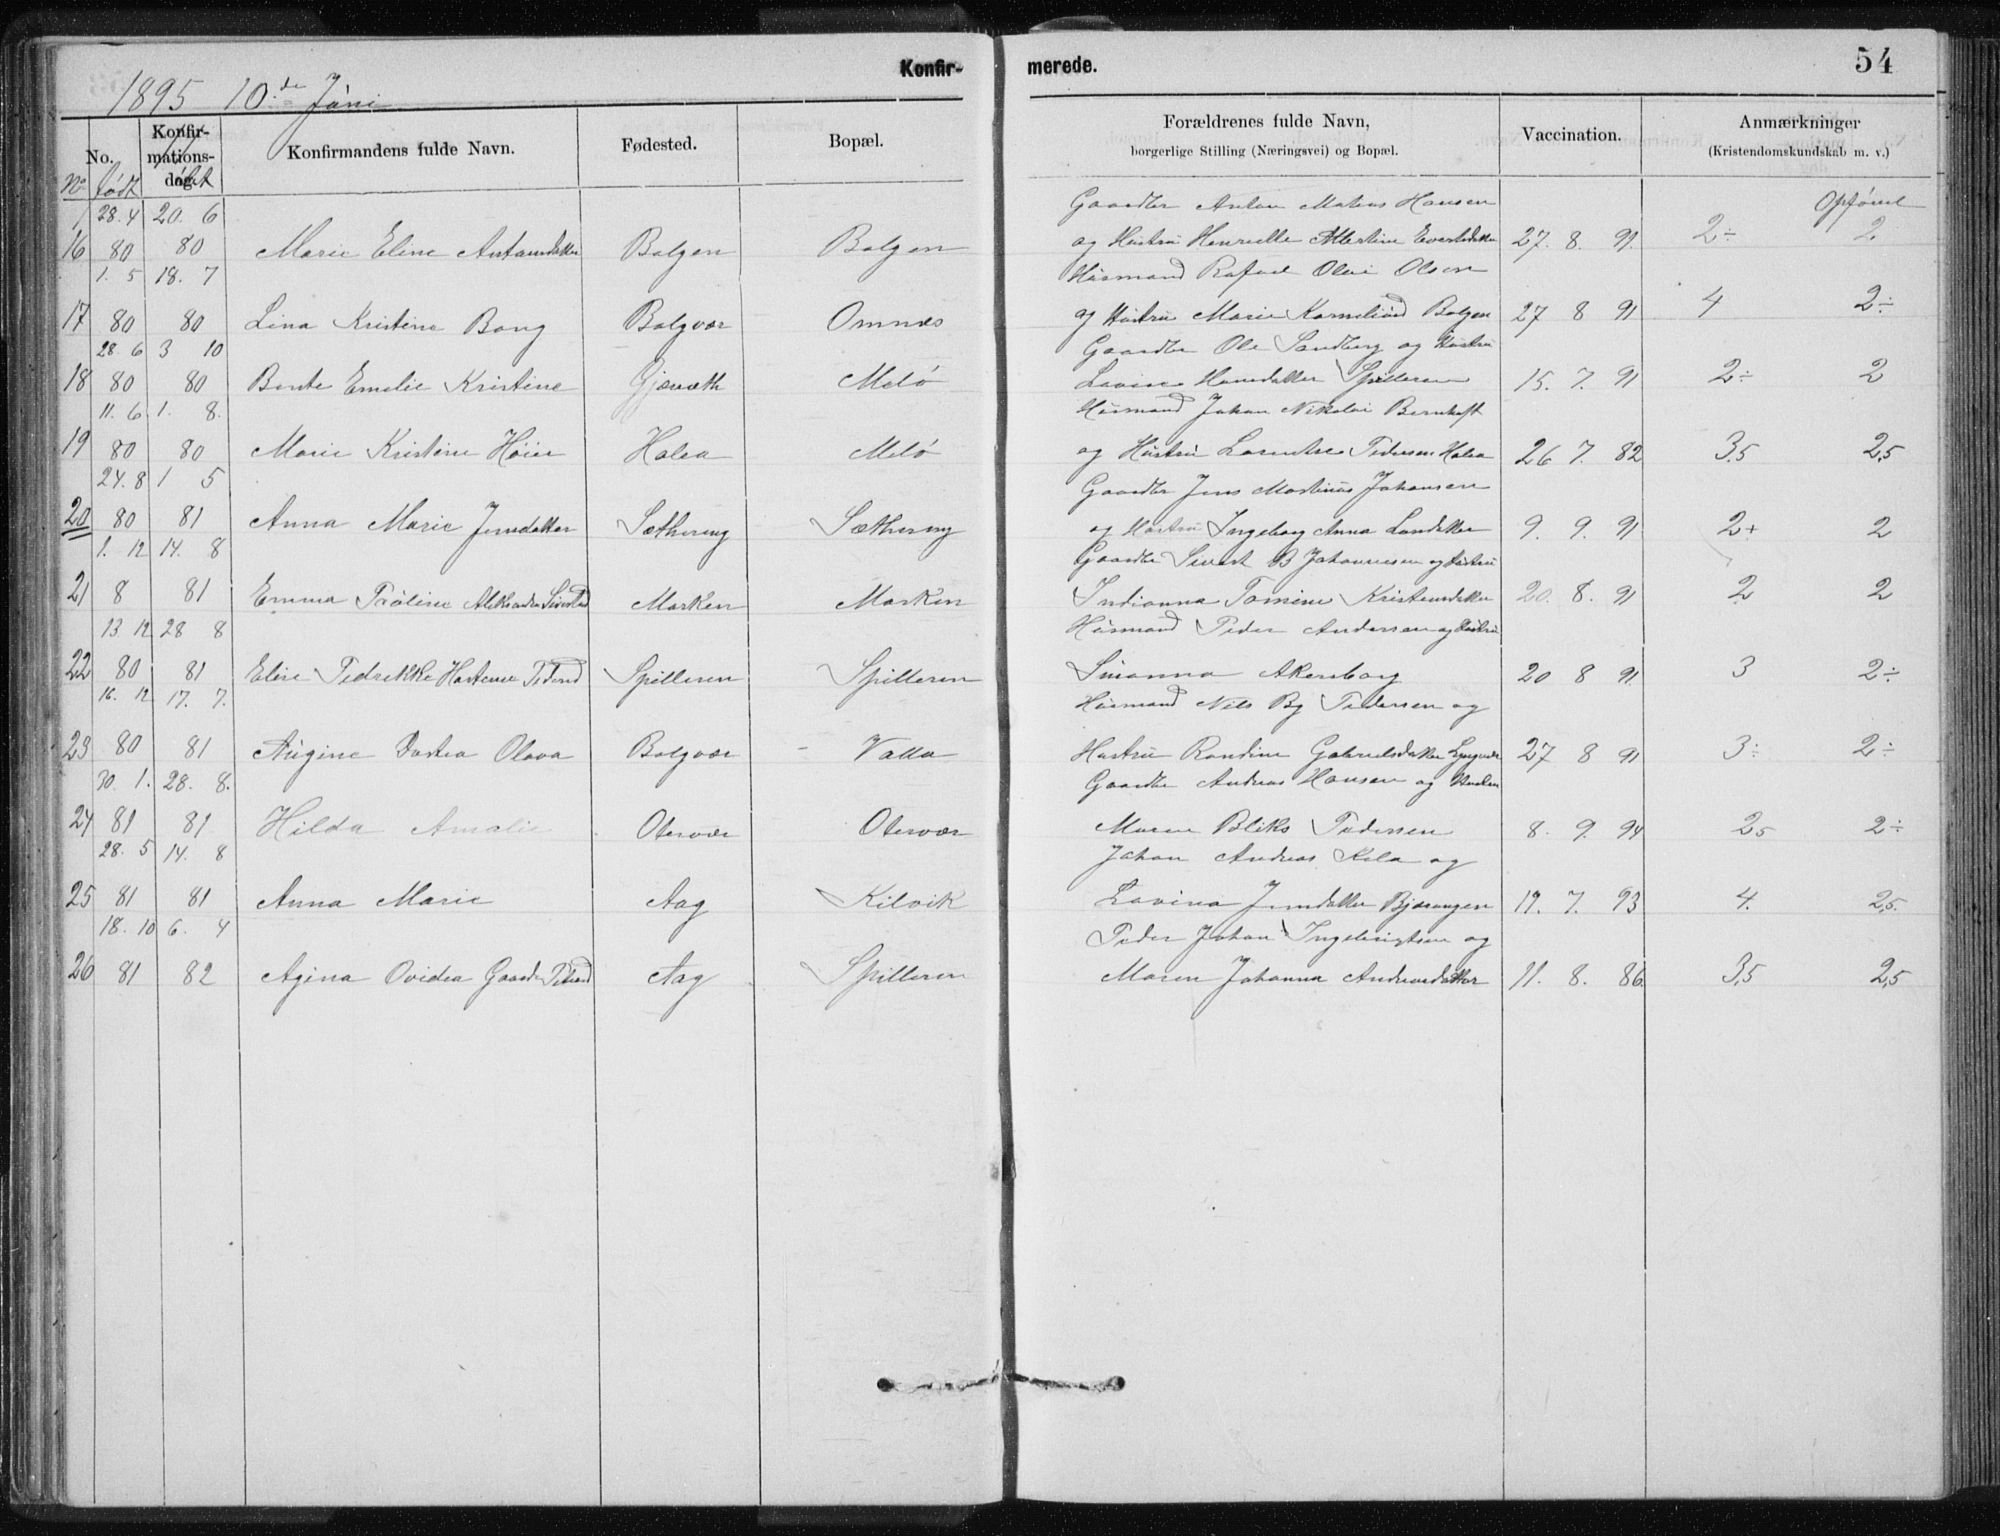 Konfir- merede. 54
1895 10.de Júni
No. Konfir-mations-dag. Konfirmandens fulde Navn. Fødested. Bopæl. Forældrenes fulde Navn, borgerlige Stilling (Næringsvei) og Bopæl. Vaccination. Anmærkninger (Kristendomskundskab m. v.)
No født
28.4 20. 6 Gaardbr Anton Hansen Opførsel
16 80 80 Marie Eline Bolgen Bolgen og Hústrú 27. 8. 91. 2÷ 2
1. 5 18. 7 Húsmand Rafael Olai Olsen
17 80 80 Lina Kristine Bang Bolgvær Omnæs og Hústrú Marie Bolgen 27 8 91 4 2÷
28. 6 3 10 Gaardbr Ole Sandberg og Hústrú
18 80 80 Bente Emelie Kristine Melö Lovise Hansdatter Spilleren 15. 7. 91 2÷ 2
11. 6 1. 8. Húsmand Johan Nikolai Bernhoft
19 80 80 Marie Kristine Höier Halsa Melö og Hústrú Pedersen Halsa 26 7. 82 3.5 2,5
24. 8 1 5 Gaardbr Jens Martinús Johansen
20 80 81 Anna Marie Jensdatter Sæthering Sæthering og Hústrú Ingeborg Anna 9. 9. 91 2+ 2
1. 12 14. 8 Gaardbr Sivert B Johannesen og Hústrú
21 8 81 Emma Paúline Marken Marken Indianna Tomine Kristensdatter 20. 8. 91 2 2
13. 12 28 8 Húsmand Peder Andersen og Hústrú
22 80 81 Elise Pedrikke Spilleren Spilleren Súsanna Akersborg 20 8 91 3 2÷
16. 12 17. 7. Húsmand Nils Pedersen og
23 80 81 Aúgine Dortea Olava Bolgvær Valla Hústrú Randine Gabrielsdatter 27 8 91 3÷ 2÷
30. 1. 28. 8. Gaardbr Andreas Hansen og
24 81 81 Hilda Amalie Otervær Otervær Maren Bliks Pedersen 8. 9. 94 25 2÷
28. 5 14. 8 Johan Andreas Kila og
25 81 81 Anna Marie Aag Kilvik Lovina Jensdatter Bjærangen 19. 7. 93 4. 2,5.
18. 10 6. 4 Peder Johan Ingebrigtsen og
26 81 82 Agina Ovidea Aag Spilleren Maren Johanna Andreasdatter 11. 8. 86. 3,5 2,5